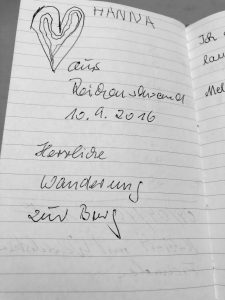 HANNA
aus
Reichenschwand
10.9.2016
Herrliche
Wanderung
zur Burg
Ich